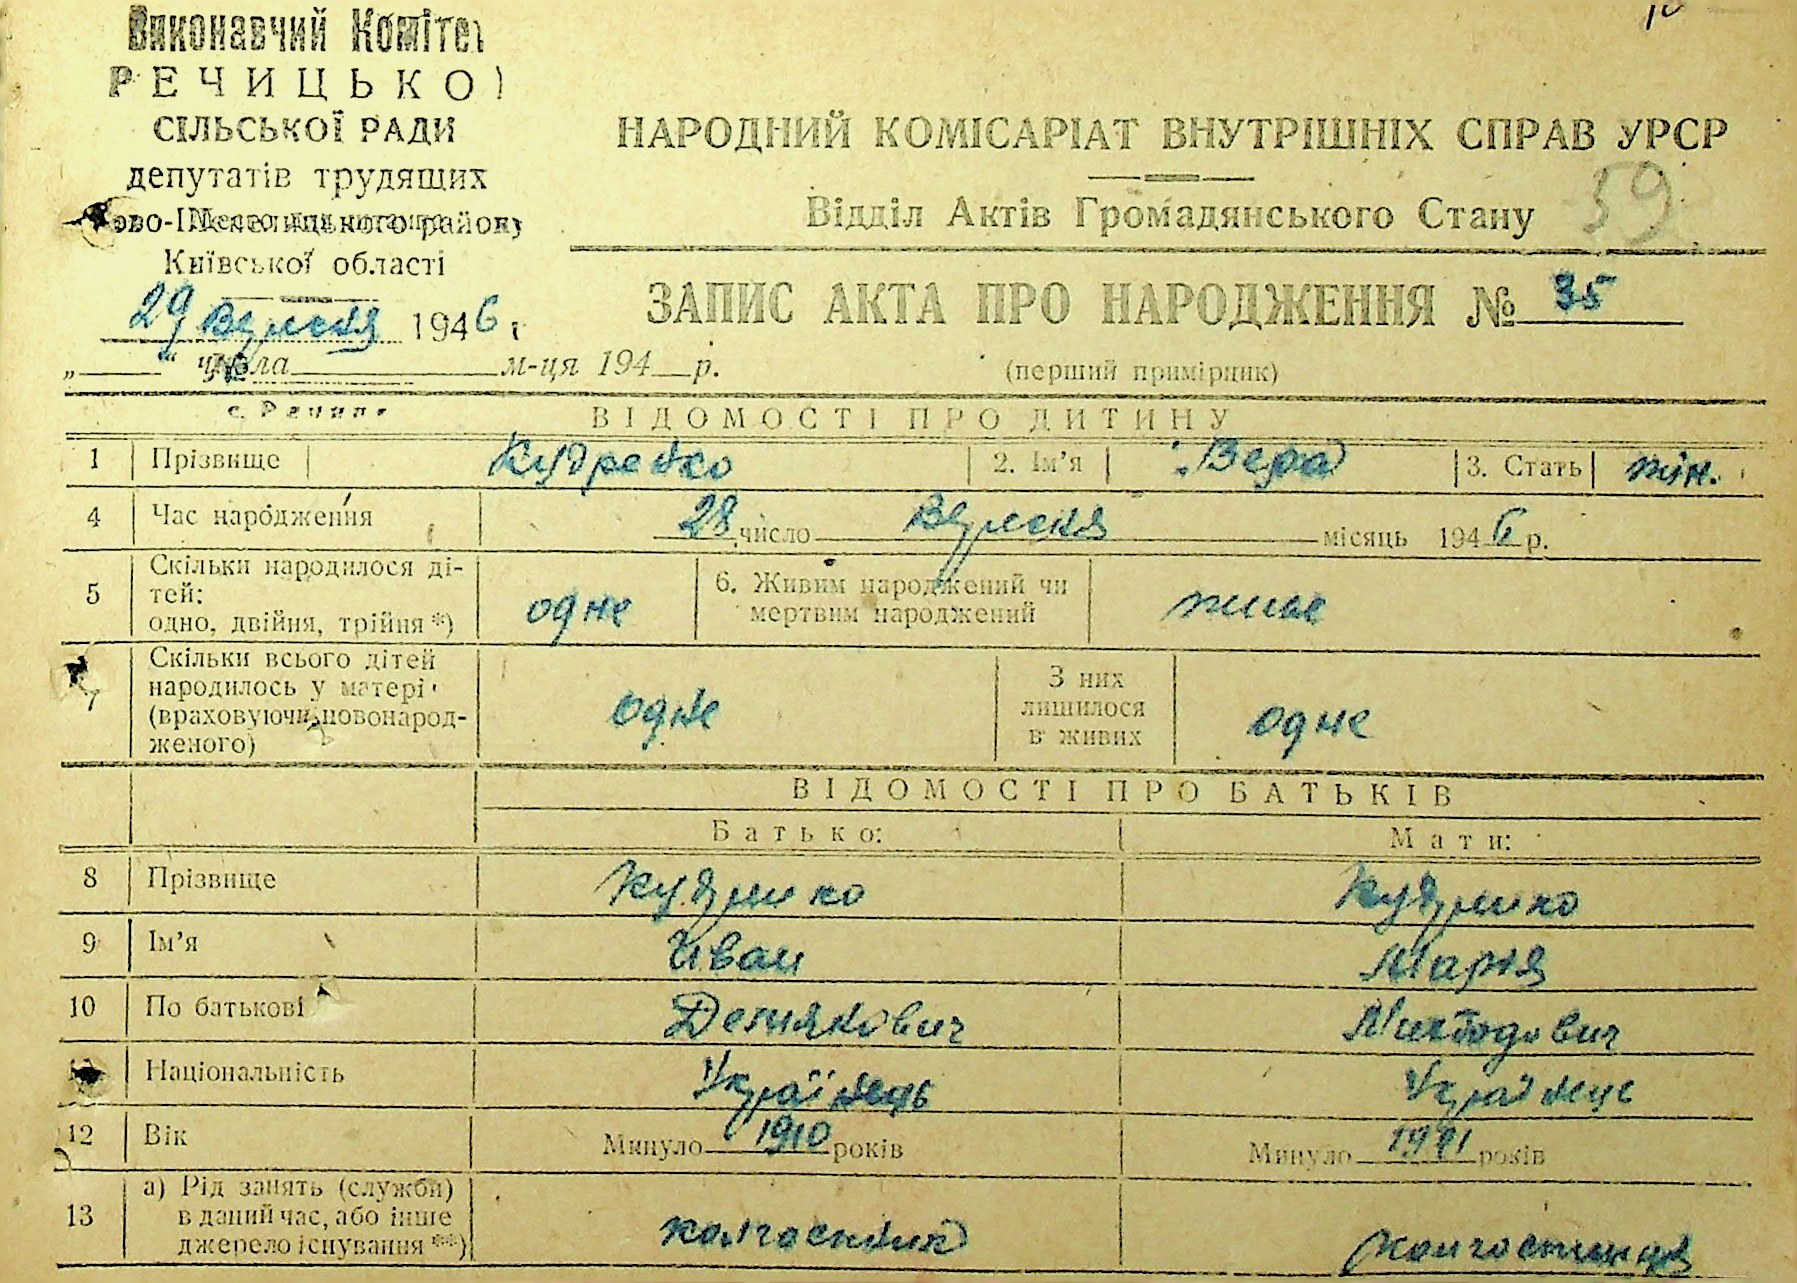 Виконавчий Комітет
РЕЧИЦЬКОЇ
СІЛЬСЬКОЇ РАДИ
депутатів трудящих
Київської області
29 Вересня 1946 р
„ “ числа м-ця 194 р.
с. Речиця
НАРОДНИЙ КОМІСАРІАТ ВНУТРІШНІХ СПРАВ УРСР
59
Відділ Актів Громадянського Стану
ЗАПИС АКТА ПРО НАРОДЖЕННЯ № 35
(перший примірник)
ВІДОМОСТІ ПРО ДИТИНУ
1 Прізвище Кудренко 2. Ім’я Вера 3. Стать жін.
4 Час народження 28 число Вересня місяць 1946 р.
5 Скільки народилося ді-
тей:
одно, двійня, трійня *) одне
6. Живим народжений чи
мертвим народжений живе
7 Скільки всього дітей
народилось у матері
(враховуючи новонарод-
женого) одне
З них
лишилося
в живих одне
ВІДОМОСТІ ПРО БАТЬКІВ
Батько: Мати:
8 Прізвище
9 Ім’я Іван Марія
10 По батькові
Національність Українець Українець
12 Вік Минуло 1910 років Минуло років
13 а) Рід занять (служби)
в даний час, або інше
джерело існування **) колгоспник